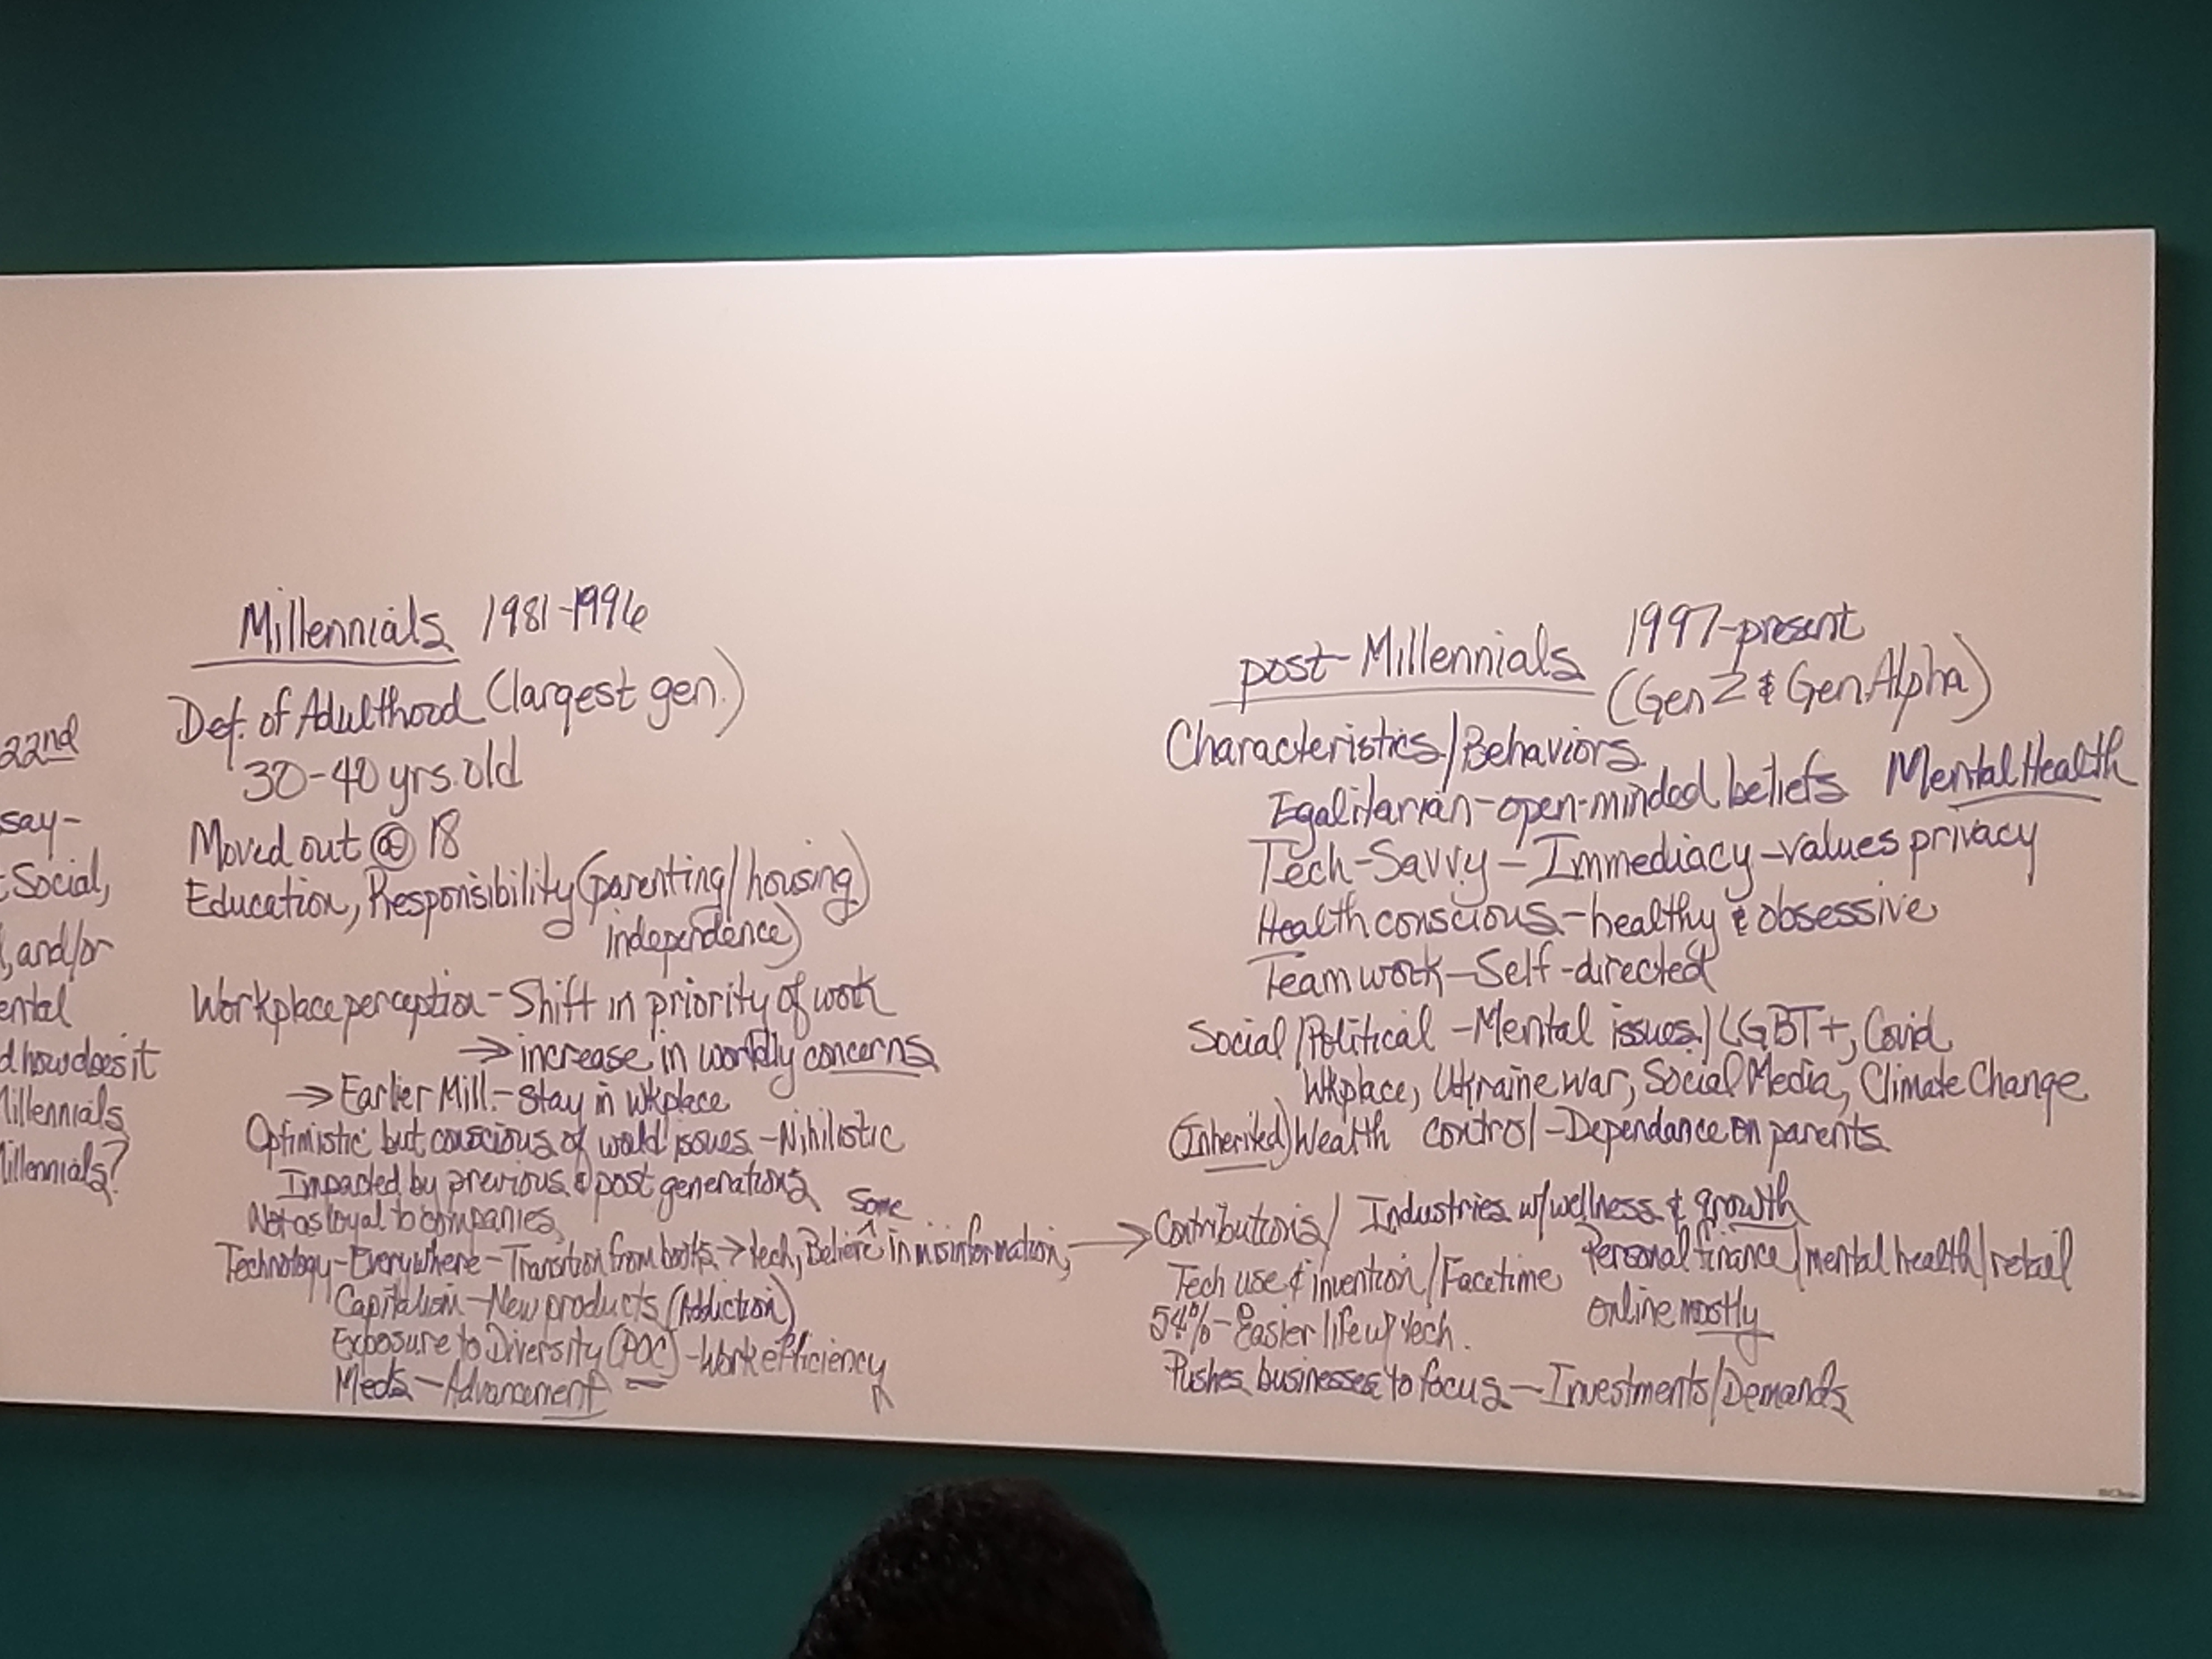 22nd
say-
Social,
, and/or
ental
d how does it
Millennials
Millennials?
Millennials 1981-1996
Def. of Adulthood (largest gen.)
30-40 yrs. old
Moved out @ 18
Education, Responsibility (parenting/housing)
independence)
Workplace perception - Shift in priority of work
→ increase in worldly concerns
→ Earlier Mill. - stay in wkplace
Optimistic but conscious of world issues - Nihilistic
Impacted by previous & post generations
Not as loyal to companies,
some
Technology - Everywhere - Transition from books → tech, Believe ^ in misinformation, →
Capitalism - New products (Addiction)
Exposure to Diversity (POC) - Work efficiency
Meds - Advancement
post-Millennials 1997-present
(Gen Z & Gen Alpha)
Characteristics/Behaviors
Egalitarian - open-minded beliefs Mental Health
Tech-Savvy - Immediacy - values privacy
Health conscious - healthy & obsessive
Teamwork - Self-directed
Social/Political - Mental issues/LGBT+, Covid
Wkplace, Ukraine war, Social Media, Climate Change
(Inherited) Wealth control - Dependance on parents
Contributions/ Industries w/wellness & growth
Personal finance/mental health/retail
Tech use & invention/Facetime online mostly
54% - Easier life w/ tech.
Pushes businesses to focus - Investments/Demands